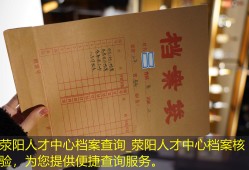 档案袋
荥阳人才中心档案查询_荥阳人才中心档案核
验，为您提供便捷查询服务。